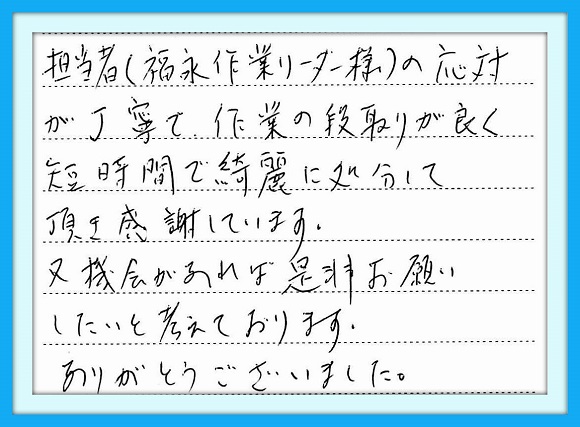 担当者(福永作業リーダー様)の応対
が丁寧で、作業の段取りが良く
短時間で綺麗に処分して
頂き感謝しています。
又機会があれば是非お願い
したいと考えております。
ありがとうございました。